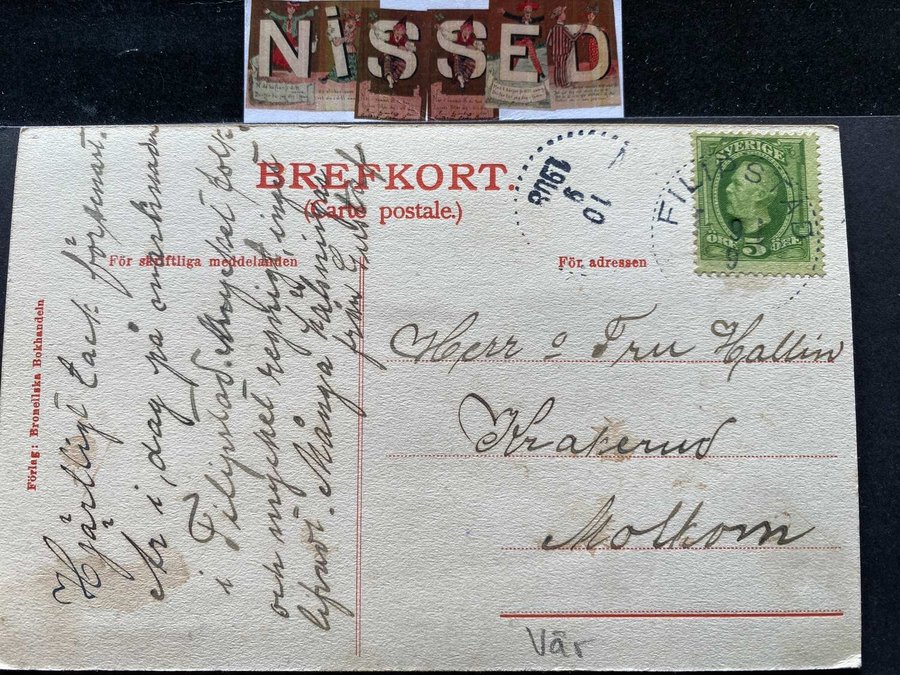 NISSED
BREFKORT.
(Carte postale.)
För skriftliga meddelanden
För adressen
Förlag: Bronellska Bokhandeln
Hjärtligt tack för senast.
Är i dag på
i Filipstad. Mycket folk
och mycket regnigt,
Många hälsningar
från
SVERIGE
5
ÖRE
ÖRE
FILIPSTAD
9
10
9
1908
Herr o Fru Hallin
Krakerud
Molkom
Vär